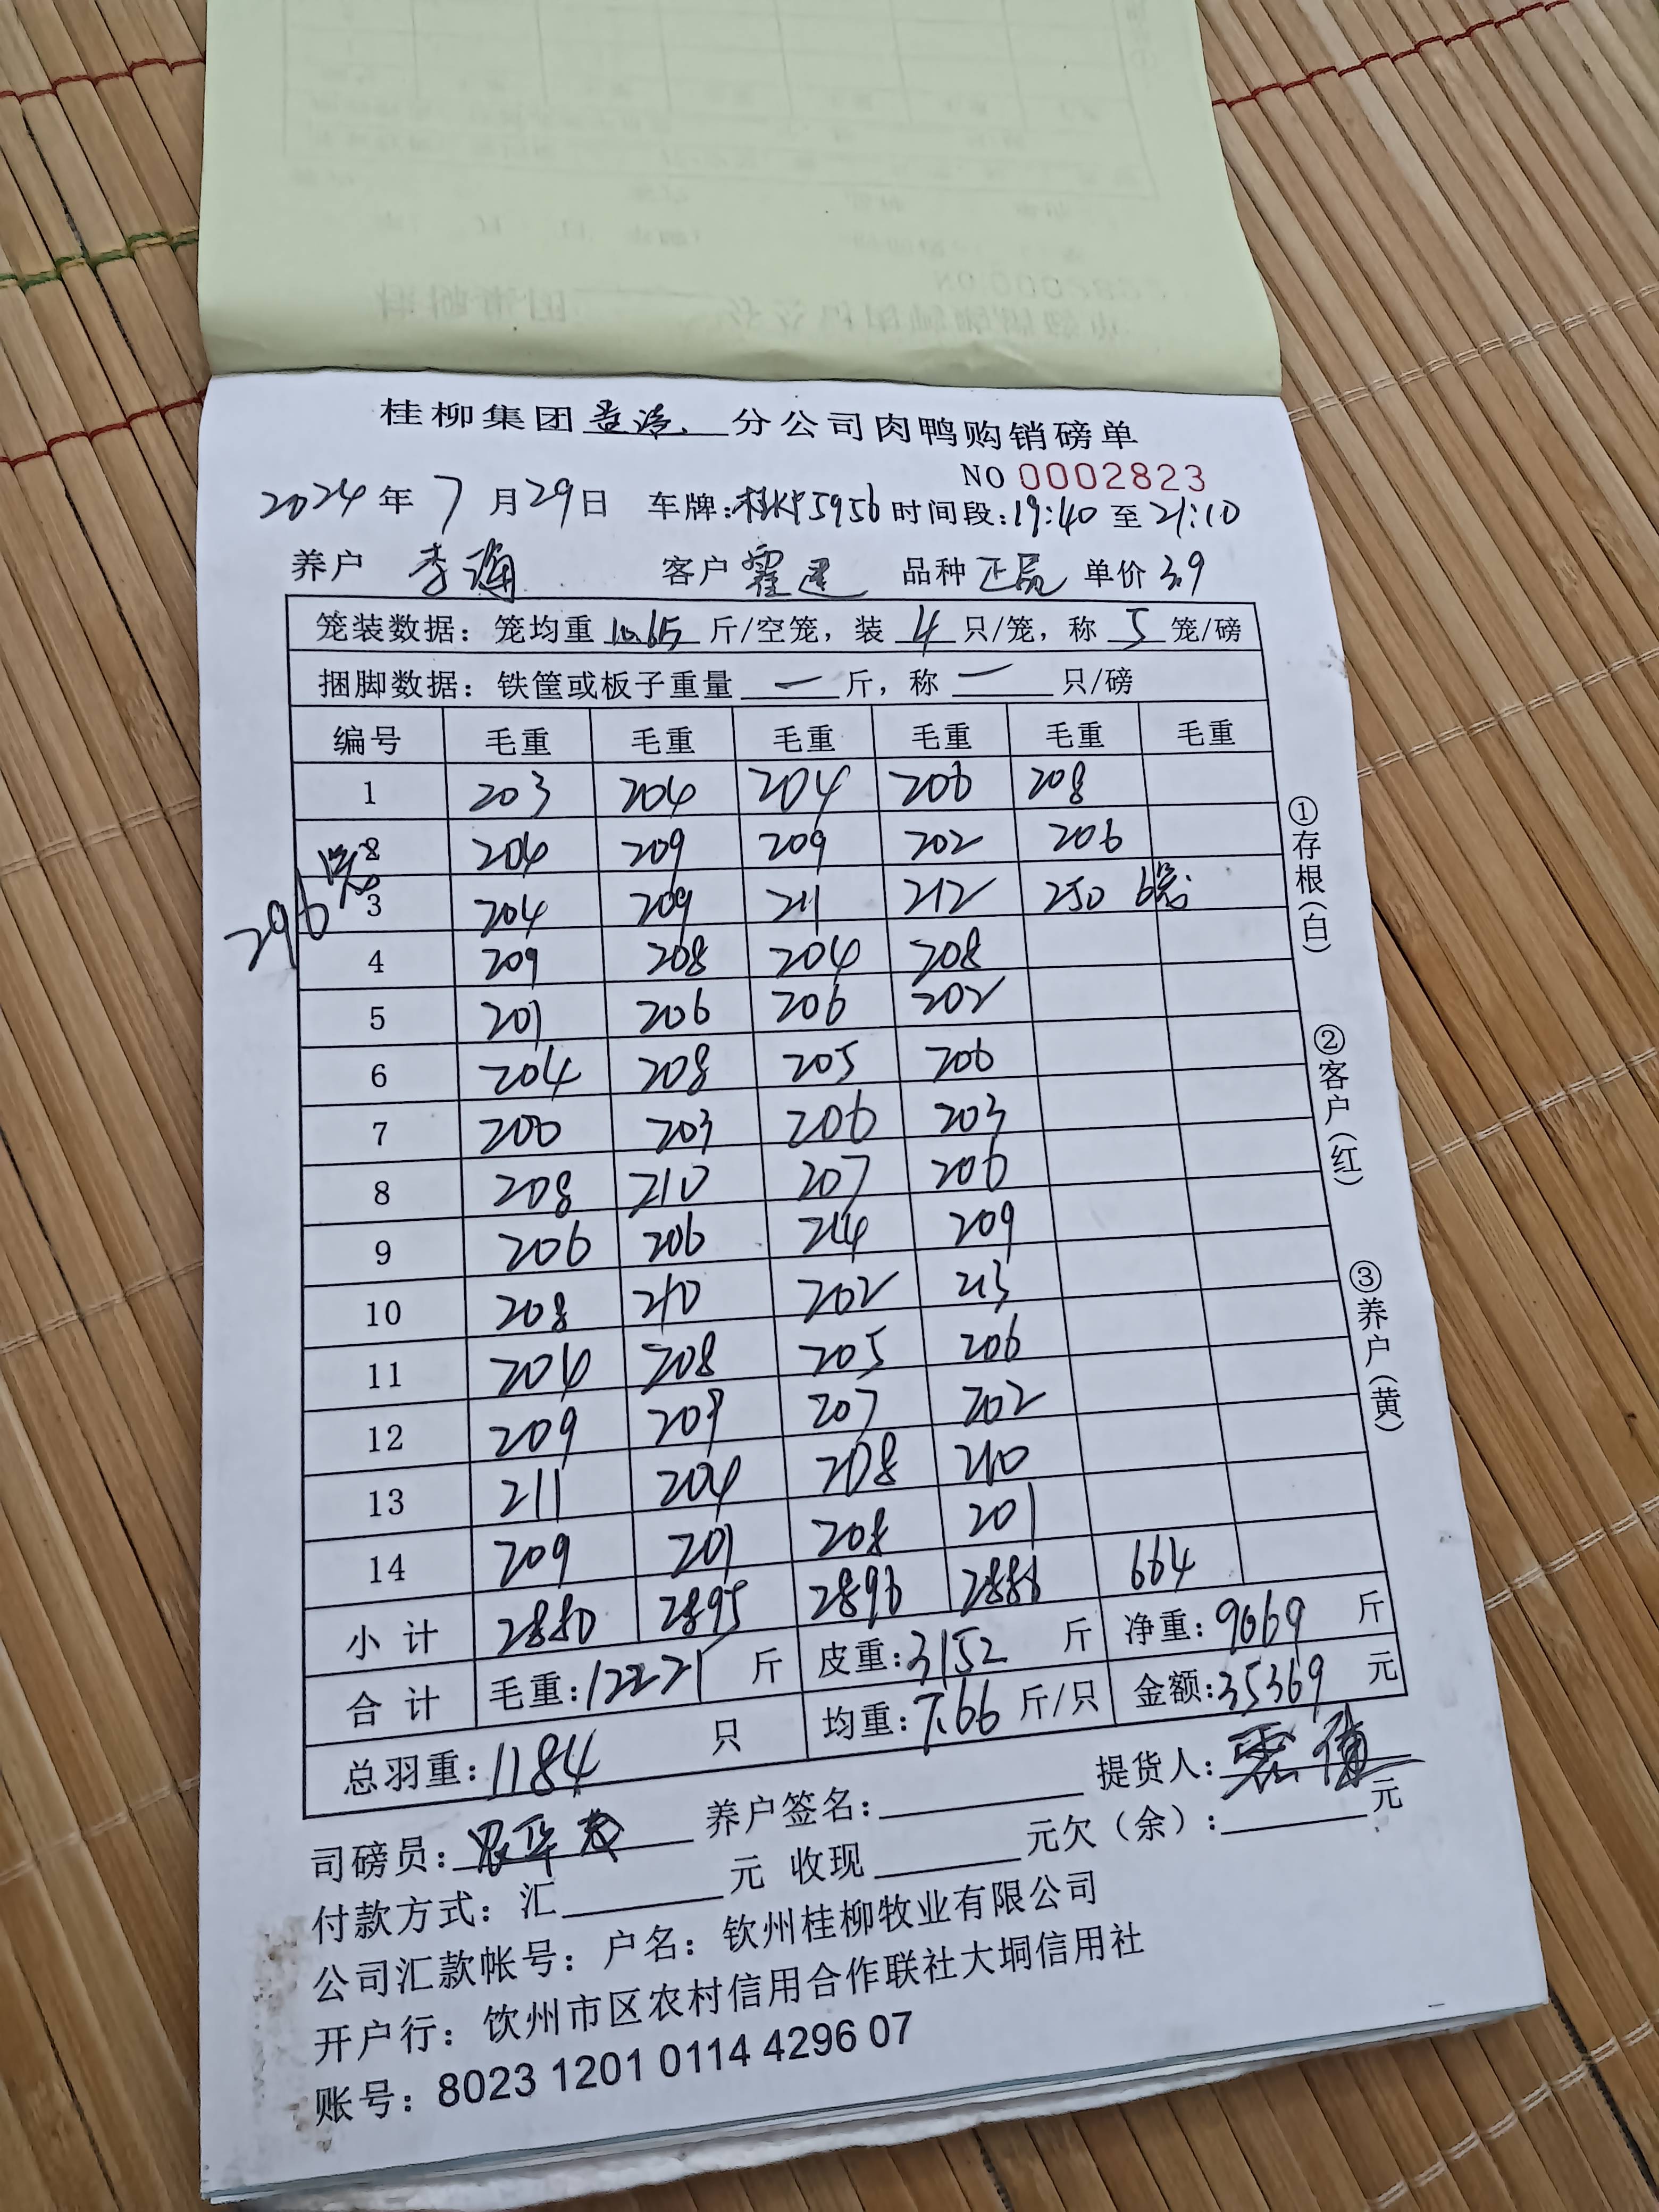 桂柳集团 分公司肉鸭购销磅单
NO 0002823
2024年7月29日 车牌:桂KP5956 时间段:19:40至21:10
养户 李海 客户 霍 品种 正品 单价 3.9
笼装数据：笼均重10.65斤/空笼，装4只/笼，称5笼/磅
捆脚数据：铁筐或板子重量 一 斤，称 一 只/磅
编号 毛重 毛重 毛重 毛重 毛重 毛重
1 203 204 204 206 208
2 204 209 209 202 206
296笼
3 204 209 211 212 250 6笼
4 209 208 204 208
5 201 206 206 202
6 204 208 205 206
7 200 203 206 203
8 208 210 207 206
9 206 206 214 209
10 208 210 202 213
11 204 208 205 206
12 209 209 207 202
13 211 204 208 210
14 209 201 208 201
小计 2880 2895 2896 2886 664
合计 毛重:12221斤 皮重:3152斤 净重:9069斤
总羽重:1184只 均重:7.66斤/只 金额:35369元
司磅员: 养户签名: 提货人:
付款方式：汇 元 收现 元欠（余）: 元
公司汇款帐号：户名：钦州桂柳牧业有限公司
开户行：钦州市区农村信用合作联社大垌信用社
账号：8023 1201 0114 4296 07
①存根（白）
②客户（红）
③养户（黄）